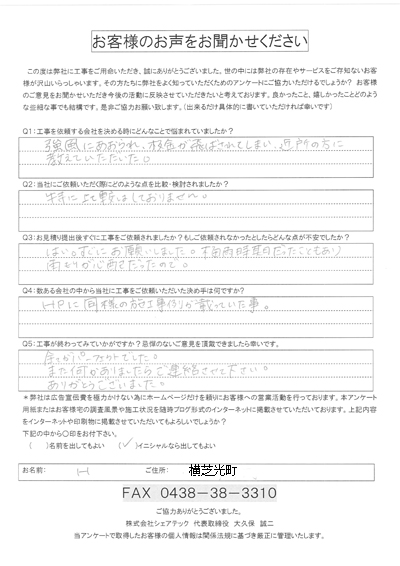 お客様のお声をお聞かせください
この度は弊社に工事をご用命いただき、誠にありがとうございました。世の中には弊社の存在やサービスをご存知ないお客
様が沢山いらっしゃいます。その方たちに弊社をよく知っていただくためのアンケートにご協力いただけるでしょうか？ お客様
のご意見をお聞かせいただき今後の活動に反映させていただきたいと考えております。良かったこと、嬉しかったことどのよう
な些細な事でも結構です。是非ご協力お願い致します。（出来るだけ具体的に書いていただければ幸いです）
Q1：工事を依頼する会社を決める時にどんなことで悩まれていましたか？
強風にあおられ、板金が飛ばされてしまい、近所の方に
教えていただいた。
Q2：当社にご依頼いただく際にどのような点を比較・検討されましたか？
特に比較はしておりません。
Q3：お見積り提出後すぐに工事をご依頼されましたか？もしご依頼されなかったとしたらどんな点が不安でしたか？
はい。すぐにお願いしました。梅雨時期だったこともあり
雨もりが心配だったので。
Q4：数ある会社の中から当社に工事をご依頼いただいた決め手は何ですか？
HPに同様の施工事例が載っていた事。
Q5：工事が終わってみていかがですか？忌憚のないご意見を頂戴できましたら幸いです。
全てがパーフェクトでした。
また何かありましたらご連絡させて下さい。
ありがとうございました。
＊弊社は広告宣伝費を極力かけない為にホームページだけを頼りにお客様への営業活動を行っております。本アンケート
用紙またはお客様宅の調査風景や施工状況を随時ブログ形式のインターネットに掲載させていただいております。上記内容
をインターネットや印刷物に掲載させていただいてもよろしいでしょうか？
下記の中から○印をお付下さい。
（ ）名前を出してもよい （✓）イニシャルなら出してもよい
お名前： H ご住所： 横芝光町
FAX 0438-38-3310
ご協力ありがとうございました。
株式会社シェアテック 代表取締役 大久保 誠二
当アンケートで取得したお客様の個人情報は関係法規に基づき厳正に管理いたします。